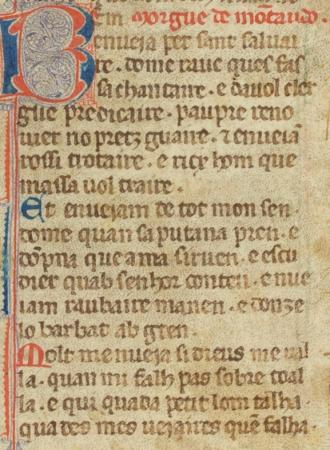 em Morgue de mōtaudo.
Benueia per sant saluai
re. dome rauc ques fas
sa chantaire. e dauol cler
gue predicaire. paupre reno
uier no pretz guaire. ⁊ enueiā
rossi trotaire. e ricx hom que
massa uol traire.
Et enueiam de tot mon sen.
dome quan sa putana pren. e
dōpna que ama siruen. e escu
dier quab senhor conten. e nue
iam raubaire manen. e donze
lo barbat ab gren.
Molt menueia si dieus me ual
la. quan mi falh pas sobre toal
la. e qui quada petit lom talha.
qua des mes ueiaires quē falha.